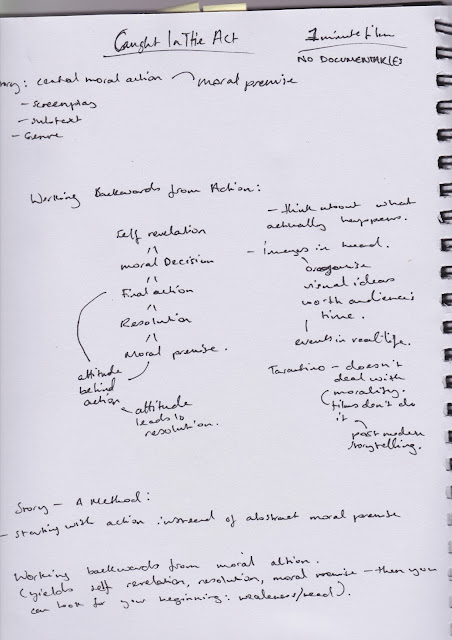 Caught In The Act
1 minute film
NO DOCUMENTARIES
: central moral action moral premise
- screenplay
- subtext
- Genre
Working Backwards from Action:
self revelation
moral Decision
Final action
Resolution
Moral premise.
attitude
behind
action
attitude
leads to
resolution.
- think about what
actually happens.
- Images in head.
organise
visual ideas
worth audience's
time.
events in real-life.
Tarantino - doesn't
deal with
morality.
films don't do
it
post modern
storytelling.
Story - A Method:
- starting with action instead of abstract moral premise
Working backwards from moral action.
(yields self revelation, resolution, moral premise - then you
can look for your beginning: weakness/need).